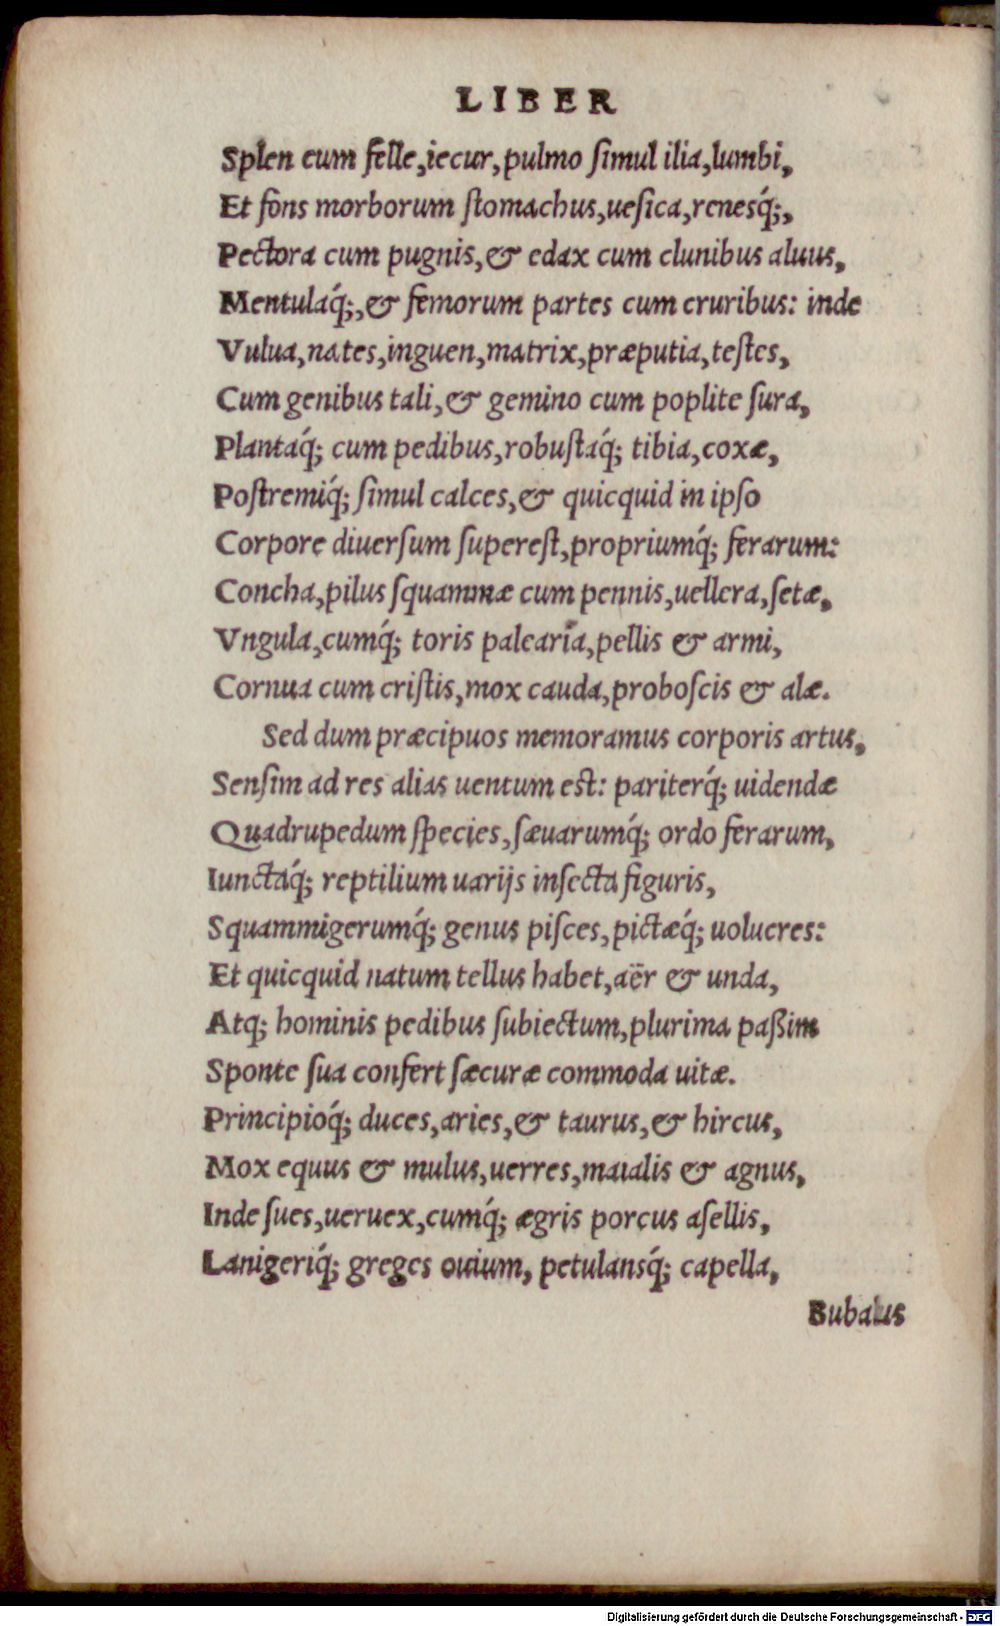 LIBER
Splen cum felle,iecur,pulmo ſimul ilia,lumbi,
Et fons morborum ſtomachus,ueſica,renesq́;,
Pectora cum pugnis,& edax cum clunibus aluus,
Mentulaq́;,& femorum partes cum cruribus: inde
Vulua,nates,inguen,matrix,præputia,teſtes,
Cum genibus tali,& gemino cum poplite ſura,
Plantaq́; cum pedibus,robuſtaq́; tibia,coxæ,
Poſtremiq́; ſimul calces,& quicquid in ipſo
Corpore diuerſum ſupereſt,propriumq́; ferarum:
Concha,pilus ſquammæ cum pennis,uellera,ſetæ,
Vngula,cumq́; toris palearia,pellis & armi,
Cornua cum criſtis,mox cauda,proboſcis & alæ.
Sed dum præcipuos memoramus corporis artus,
Senſim ad res alias uentum est: pariterq́; uidendæ
Quadrupedum ſpecies,ſæuarumq́; ordo ferarum,
Iunctaq́; reptilium uarijs inſecta figuris,
Squammigerumq́; genus piſces,pictæq́; uolucres:
Et quicquid natum tellus habet,aër & unda,
Atq; hominis pedibus ſubiectum,plurima paßim
Sponte ſua confert ſæcuræ commoda uitæ.
Principioq́; duces,aries,& taurus,& hircus,
Mox equus & mulus,uerres,maialis & agnus,
Inde ſues,ueruex,cumq́; ægris porcus aſellis,
Lanigeriq́; greges ouium, petulansq́; capella,
Bubalus
Digitalisierung gefördert durch die Deutsche Forschungsgemeinschaft - DFG